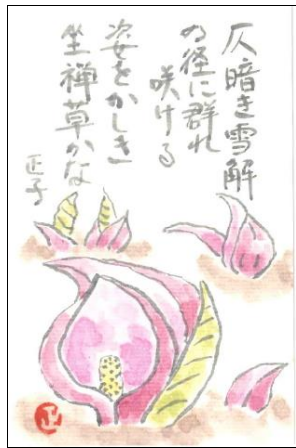 仄暗き雪解
の径に群れ
咲ける
姿をかしき
坐禅草かな
正子
正